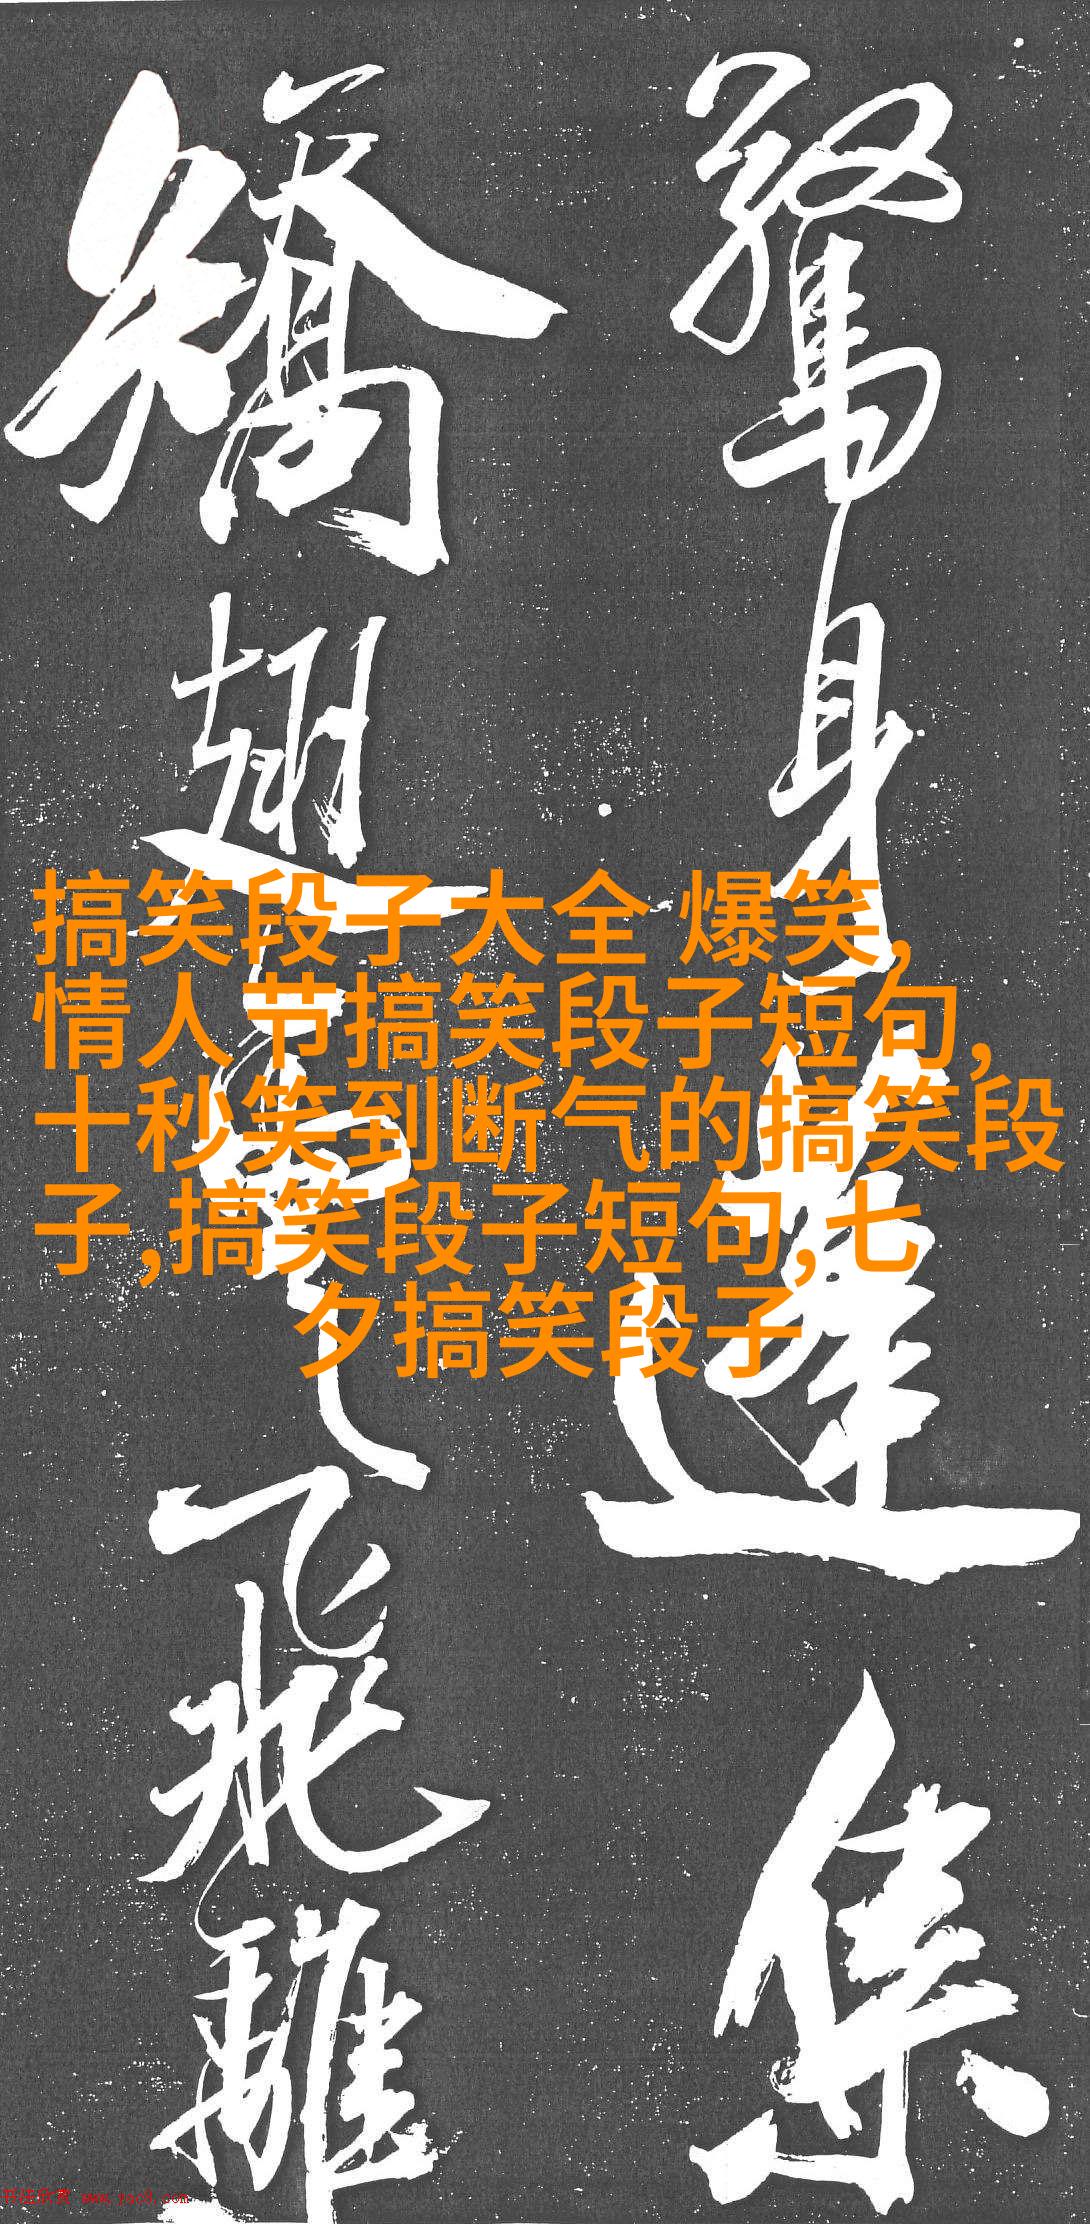 驚身蓬集
矯翅雪飛離
搞笑段子大全 爆笑,
情人节搞笑段子短句,
十秒笑到断气的搞笑段
子,搞笑段子短句,七
夕搞笑段子
书法欣赏 www.yac8.com